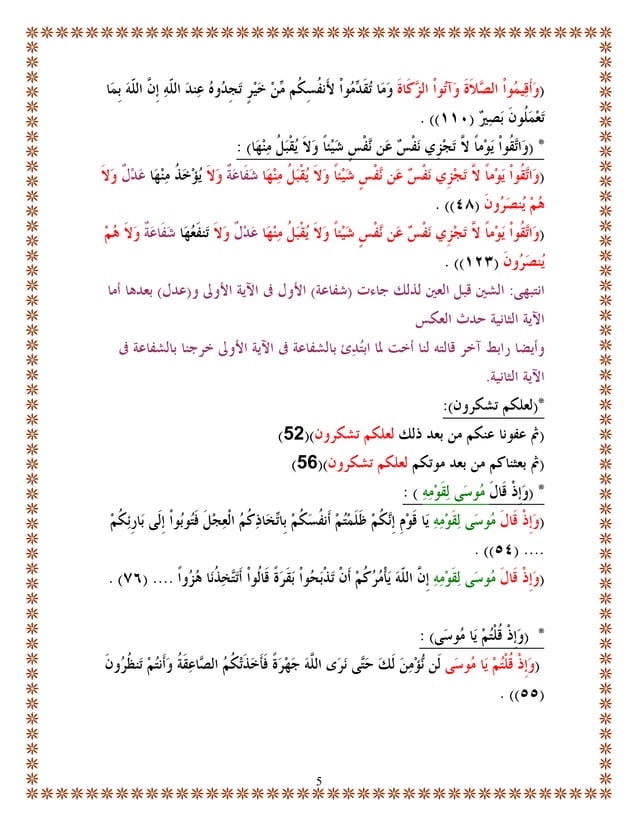 (وَأَقِيمُواْ الصَّلاَةَ وَآتُواْ الزَّكَاةَ وَمَا تُقَدِّمُواْ لأَنفُسِكُم مِّنْ خَيْرٍ تَجِدُوهُ عِندَ اللّهِ إِنَّ اللّهَ بِمَا
تَعْمَلُونَ بَصِيرٌ (١١٠)) .
* (وَاتَّقُواْ يَوْماً لاَّ تَجْزِي نَفْسٌ عَن نَّفْسٍ شَيْئاً وَلاَ يُقْبَلُ مِنْهَا) :
(وَاتَّقُواْ يَوْماً لاَّ تَجْزِي نَفْسٌ عَن نَّفْسٍ شَيْئاً وَلاَ يُقْبَلُ مِنْهَا شَفَاعَةٌ وَلاَ يُؤْخَذُ مِنْهَا عَدْلٌ وَلاَ
هُمْ يُنصَرُونَ (٤٨)) .
(وَاتَّقُواْ يَوْماً لاَّ تَجْزِي نَفْسٌ عَن نَّفْسٍ شَيْئاً وَلاَ يُقْبَلُ مِنْهَا عَدْلٌ وَلاَ تَنفَعُهَا شَفَاعَةٌ وَلاَ هُمْ
يُنصَرُونَ (١٢٣)) .
انتبهى: الشين قبل العين لذلك جاءت (شفاعة) الأول فى الآية الأولى و(عدل) بعدها أما
الآية الثانية حدث العكس
وأيضا رابط آخر قالته لنا أخت لما ابتُدِئ بالشفاعة فى الآية الأولى خرجنا بالشفاعة فى
الآية الثانية.
*(لعلكم تشكرون):
(ثم عفونا عنكم من بعد ذلك لعلكم تشكرون)(52)
(ثم بعثناكم من بعد موتكم لعلكم تشكرون)(56)
* (وَإِذْ قَالَ مُوسَى لِقَوْمِهِ ) :
(وَإِذْ قَالَ مُوسَى لِقَوْمِهِ يَا قَوْمِ إِنَّكُمْ ظَلَمْتُمْ أَنفُسَكُمْ بِاتِّخَاذِكُمُ الْعِجْلَ فَتُوبُواْ إِلَى بَارِئِكُمْ
.... (٥٤)) .
(وَإِذْ قَالَ مُوسَى لِقَوْمِهِ إِنَّ اللّهَ يَأْمُرُكُمْ أَنْ تَذْبَحُواْ بَقَرَةً قَالُواْ أَتَتَّخِذُنَا هُزُواً .... (٧٦) .
* (وَإِذْ قُلْتُمْ يَا مُوسَى) :
(وَإِذْ قُلْتُمْ يَا مُوسَى لَن نُّؤْمِنَ لَكَ حَتَّى نَرَى اللَّهَ جَهْرَةً فَأَخَذَتْكُمُ الصَّاعِقَةُ وَأَنتُمْ تَنظُرُونَ
(٥٥)) .
5